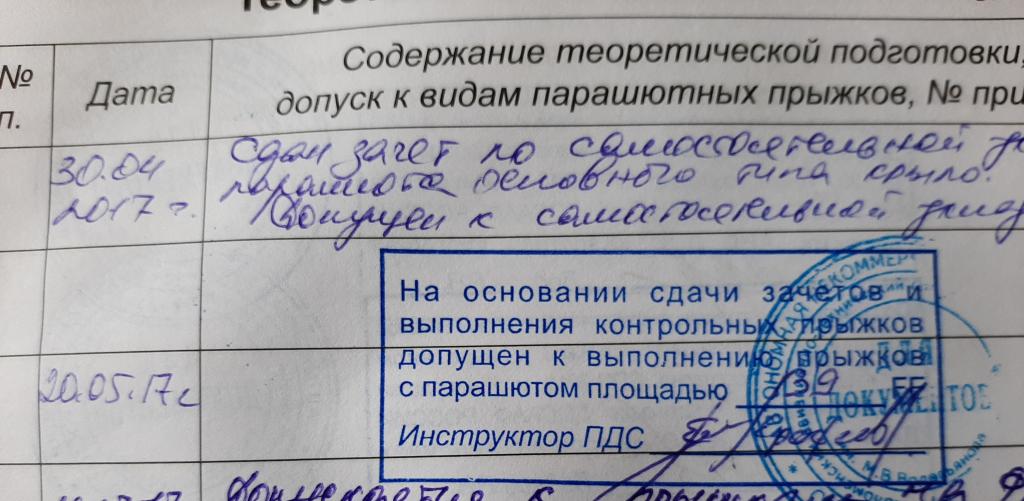 Теоре
№
п.
Дата
Содержание теоретической подготовки,
допуск к видам парашютных прыжков, № при
30.04
2017 г.
Сдан зачет по самостоятельной ук
парашюта основного типа крыло.
Допущен к самостоятельной уклад
На основании сдачи зачетов и
выполнения контрольных прыжков
допущен к выполнению прыжков
с парашютом площадью
Инструктор ПДС
20.05.17г
ДЛЯ
ДОКУМЕНТОВ